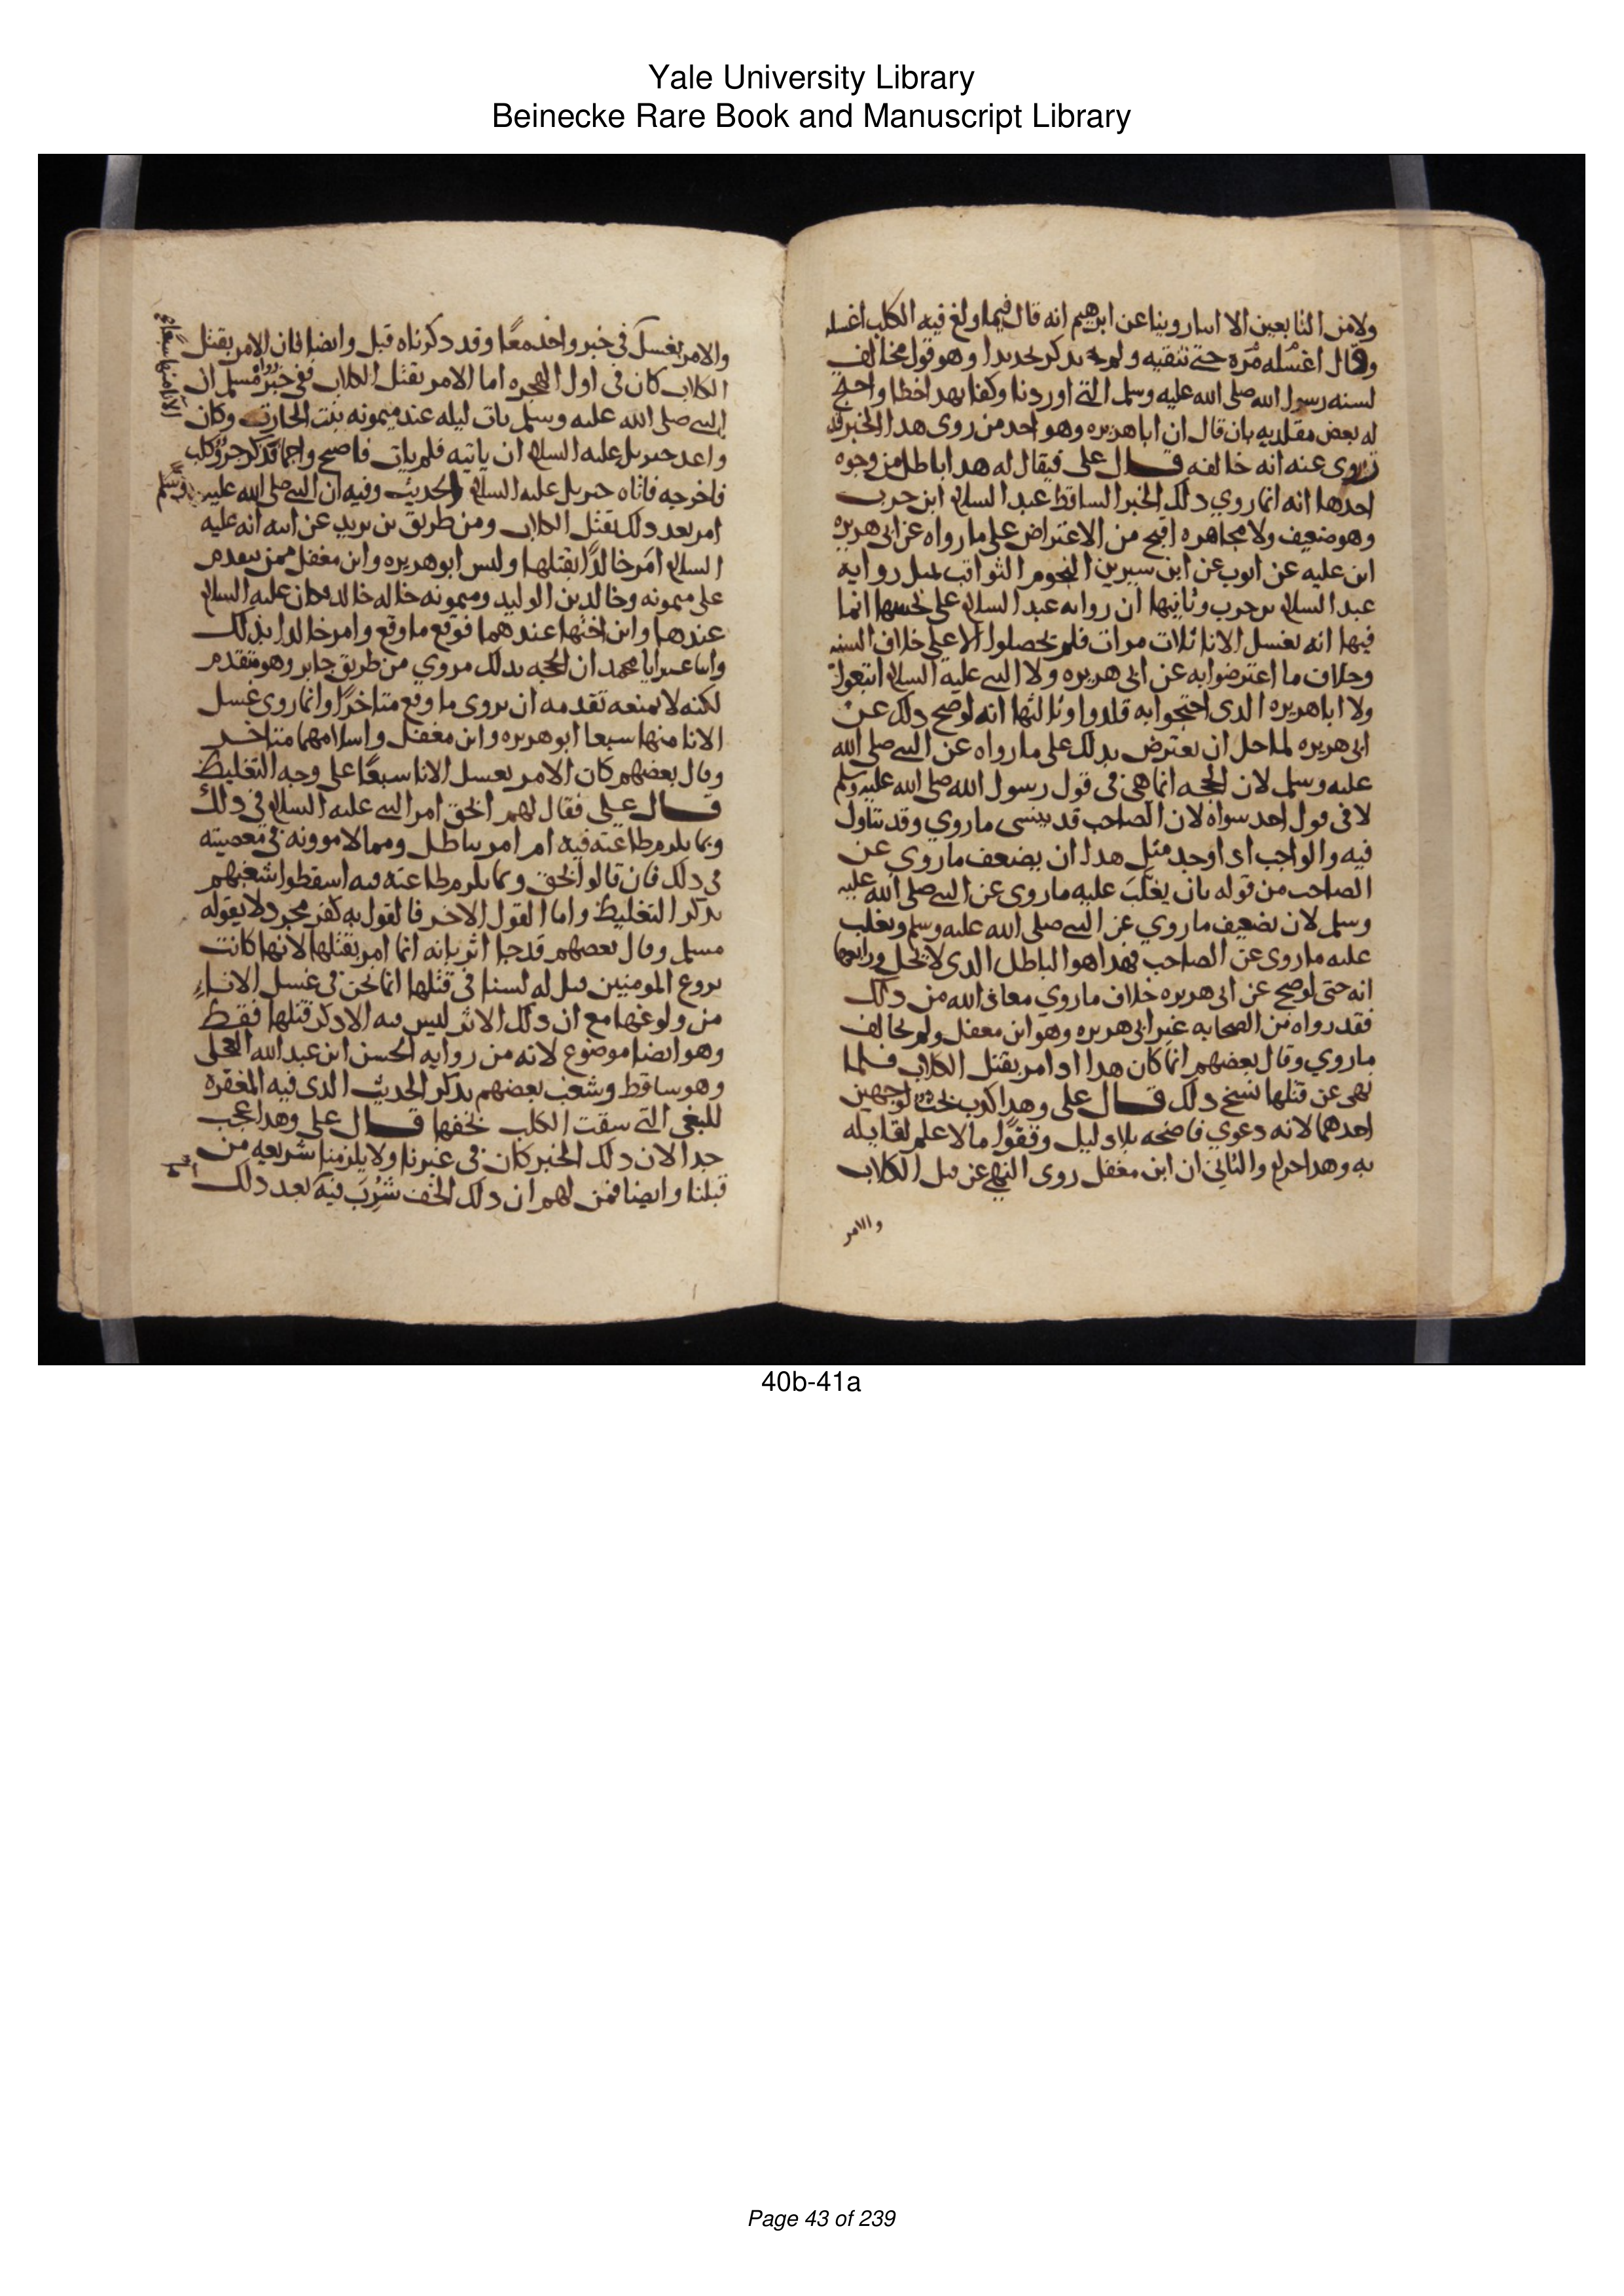 Yale University Library
Beinecke Rare Book and Manuscript Library
ولا من التابعين الا انا روينا عن ابرهيم انه قال فيما ولغ فيه الكلب اغسله
وقال اغسله مره حتى تنقيه ولم يدكر تحديدا وهو قول مخالف
لسنه رسول الله صلى الله عليه وسلم التي اوردنا وكفا بهدا خطا واحتج
له بعض مقلديه بان قال ان ابا هريره وهو احد من روى هدا الخبر قد
روى عنه انه خالفه قال على فيقال له هدا باطل من وجوه
احدها انه انما روي دلك الخبر الساقط عبد السلام ابن حرب
وهو ضعيف ولا مجاهره اقبح من الاعتراض على ما رواه عن ابى هريره
ابن عليه عن ايوب عن ابن سيرين النجوم الثواقب بمثل روايه
عبد السلام بن حرب وثانيها ان روايه عبد السلام على نحسها انما
فيها انه يغسل الانا ثلاث مرات فلم يحصلوا الا على خلاف السنه
وخلاف ما اعترضوا به عن ابى هريره ولا النبي عليه السلام اتبعوا
ولا ابا هريره الدى احتجوا به قلدوا وثالثها انه لو صح دلك عن
ابى هريره لما حل ان يعترض بدلك على ما رواه عن النبي صلى الله
عليه وسلم لان الحجه انما هى فى قول رسول الله صلى الله عليه وسلم
لا فى قول احد سواه لان الصاحب قد ينسى ما روي وقد يتاول
فيه والواجب ادا وجد مثل هدا ان يضعف ما روي عن
الصاحب من قوله بان يغلب عليه ما روى عن النبي صلى الله عليه
وسلم لان نضعيف ما روي عن النبي صلى الله عليه وسلم ويغلب
عليه ما روى عن الصاحب فهدا هو الباطل الدى لا يحل ورابعها
انه حتى لو صح عن ابى هريره خلاف ما روي معاذ الله من دلك
فقد رواه من الصحابه غير ابى هريره وهو ابن مغفل ولم يخالف
ما روي وقال بعضهم انما كان هدا اد امر بقتل الكلاب فلما
نهى عن قتلها نسخ دلك قال على وهدا كدب بحت لوجهين
احدهما لانه دعوي فاضحه بلا دليل وقفو ما لا علم لقايله
به وهدا حرام والثاني ان ابن مغفل روى النهي عن قتل الكلاب
والامر
والامر بغسل فى خبر واحد معا وقد دكرناه قبل وايضا فان الامر بقتل
الكلاب كان فى اول الهجره اما الامر بقتل الكلاب ففى خبر مسلم ان
النبي صلى الله عليه وسلم بات ليله عند ميمونه بنت الحارث وكان
واعد جبريل عليه السلام ان ياتيه فلم يات فاصبح واجما فدكر جرو كلب
فاخرجه فاتاه جبريل عليه السلام الحديث وفيه ان النبي صلى الله عليه وسلم
امر بعد دلك بقتل الكلاب ومن طريق بن بريد عن ابيه انه عليه
السلام امر خالدا بقتلها وليس ابو هريره وابن مغفل ممن يتقدم
على ميمونه وخالد بن الوليد وميمونه خاله خالد فكان عليه السلام
عندها وابن اختها عندهما فوقع ما وقع وامر خالدا بدلك
وانبا عنه ابا محمد ان الحجه بدلك مروي من طريق جابر وهو متقدم
لكنه لا يمنعه تقدمه ان يروى ما وقع متاخرا وانما روى غسل
الانا منها سبعا ابو هريره وابن مغفل واسلامهما متاخر
وقال بعضهم كان الامر بغسل الانا سبعا على وجه التغليظ
قال على فقال لهم الحق امر النبي عليه السلام فى دلك
وبما يلزم طاعته فيه ام امر بباطل ومما لا موونه فى معصيته
فى دلك فان قالوا بالحق وبما يلزم طاعته فيه اسقطوا شغبهم
بدكر التغليظ واما القول الاخر فالقول به كفر مجرد لا يقوله
مسلم وقال بعضهم قد جا اثر بانه انما امر بقتلها لانها كانت
تروع المومنين قيل له لسنا فى قتلها انما نحن فى غسل الاناء
من ولوغها مع ان دلك الاثر ليس فيه الا دكر قتلها فقط
وهو ايضا موضوع لانه من روايه الحسن ابن عبد الله العجلى
وهو ساقط وشغب بعضهم بدكر الحديث الدى فيه المغفره
للبغي التي سقت الكلب بخفها قال على وهدا عجب
جدا لان دلك الخبر كان فى غيرنا ولا يلزمنا شريعه من
قبلنا وايضا فمن لهم ان دلك الخف شرب فيه بعد دلك
الانا منها سبعا
40b-41a
Page 43 of 239